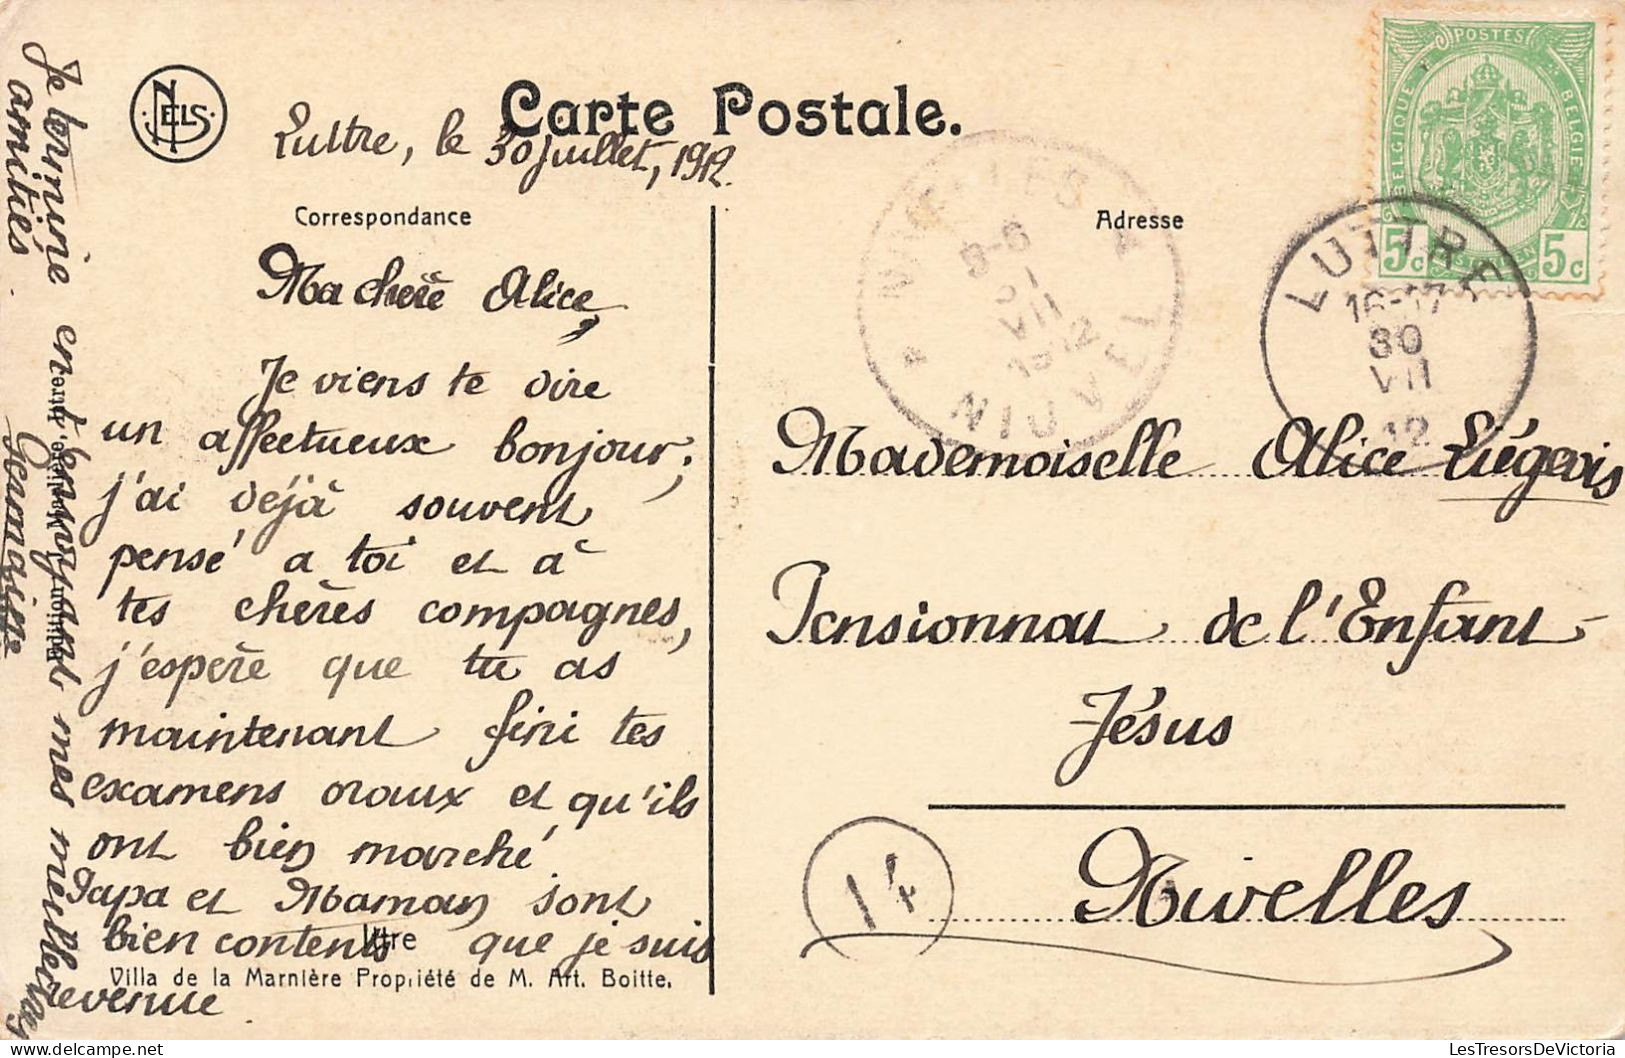 NELS
Carte Postale.
Luttre, le 30 juillet, 1912.
Correspondance
Ma chère Alice,
Je viens te dire
un affectueux bonjour;
j'ai déjà souvent
pensé a toi et à
tes chères compagnes,
j'espère que tu as
maintenant fini tes
examens oraux et qu'ils
ont bien marché
Papa et Maman sont
bien contents que je suis
revenue
Je termine en t'envoyant mes meilleures
amitiés.
Germaine
ttre
Villa de la Marnière Propriété de M. Art. Boitte.
Adresse
POSTES
BELGIQUE
BELGIE
5c
5c
LUTTRE
16-17
30
VII
12
NIVELLES
8-6
31
VII
1912
NIJVEL
Mademoiselle Alice Liégeois
Pensionnat de l'Enfant
Jésus
Nivelles
14
LesTresorsDeVictoria